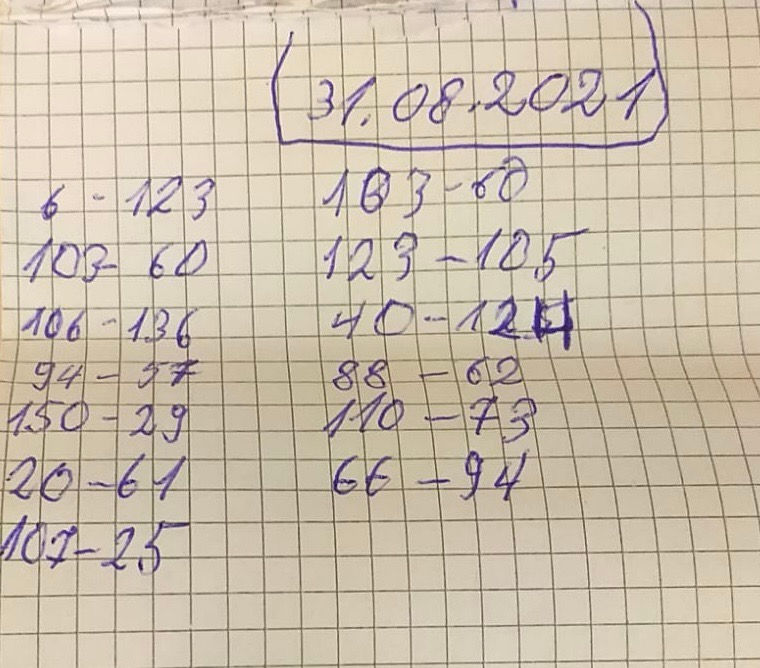 31.08.2021
6 - 123
103 - 60
106 - 136
94 - 57
150 - 29
20 - 61
107 - 25
103 - 60
123 - 105
40 - 124
88 - 62
110 - 73
66 - 94